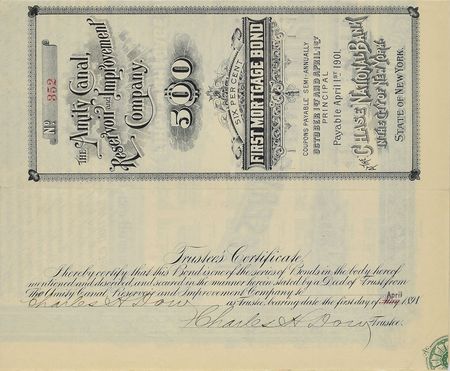 No. 352
THE Amity Canal,
Reservoir and Improvement
Company.
500
SIX PER CENT
FIRST MORTGAGE BOND
COUPONS PAYABLE SEMI-ANNUALLY
OCTOBER 1ST AND APRIL 1ST
PRINCIPAL
Payable April 1st 1901.
AT THE CHASE NATIONAL BANK
IN THE CITY OF NEW YORK
STATE OF NEW YORK.
Trustee's Certificate.
I hereby certify that this Bond is one of the series of Bonds in the body hereof
mentioned and described, and secured in the manner herein stated by a Deed of Trust from
The Amity Canal, Reservoir and Improvement Company to
Charles H Dow as trustee, bearing date the first day of May April 1891
Charles H Dow Trustee.